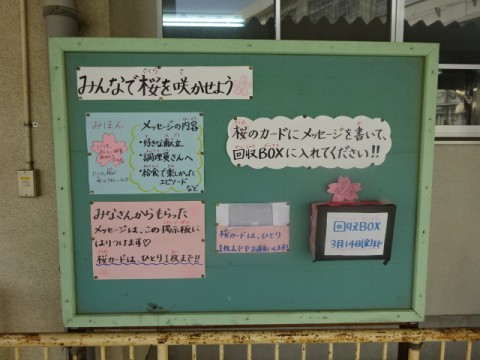 みんなで桜を咲かせよう
さくら
さ
みほん
メッセージの内容
・好きな献立
・調理員さんへ
・給食で楽しかった
エピソード
など
桜のカードにメッセージを書いて、
回収BOXに入れてください!!
みなさんからもらった
メッセージは、この掲示板に
はりつけます♡
桜カードは、ひとり1枚まで!!
桜カードは、ひとり
1枚まででお願いします!
回収BOX
3月14日(金)まで